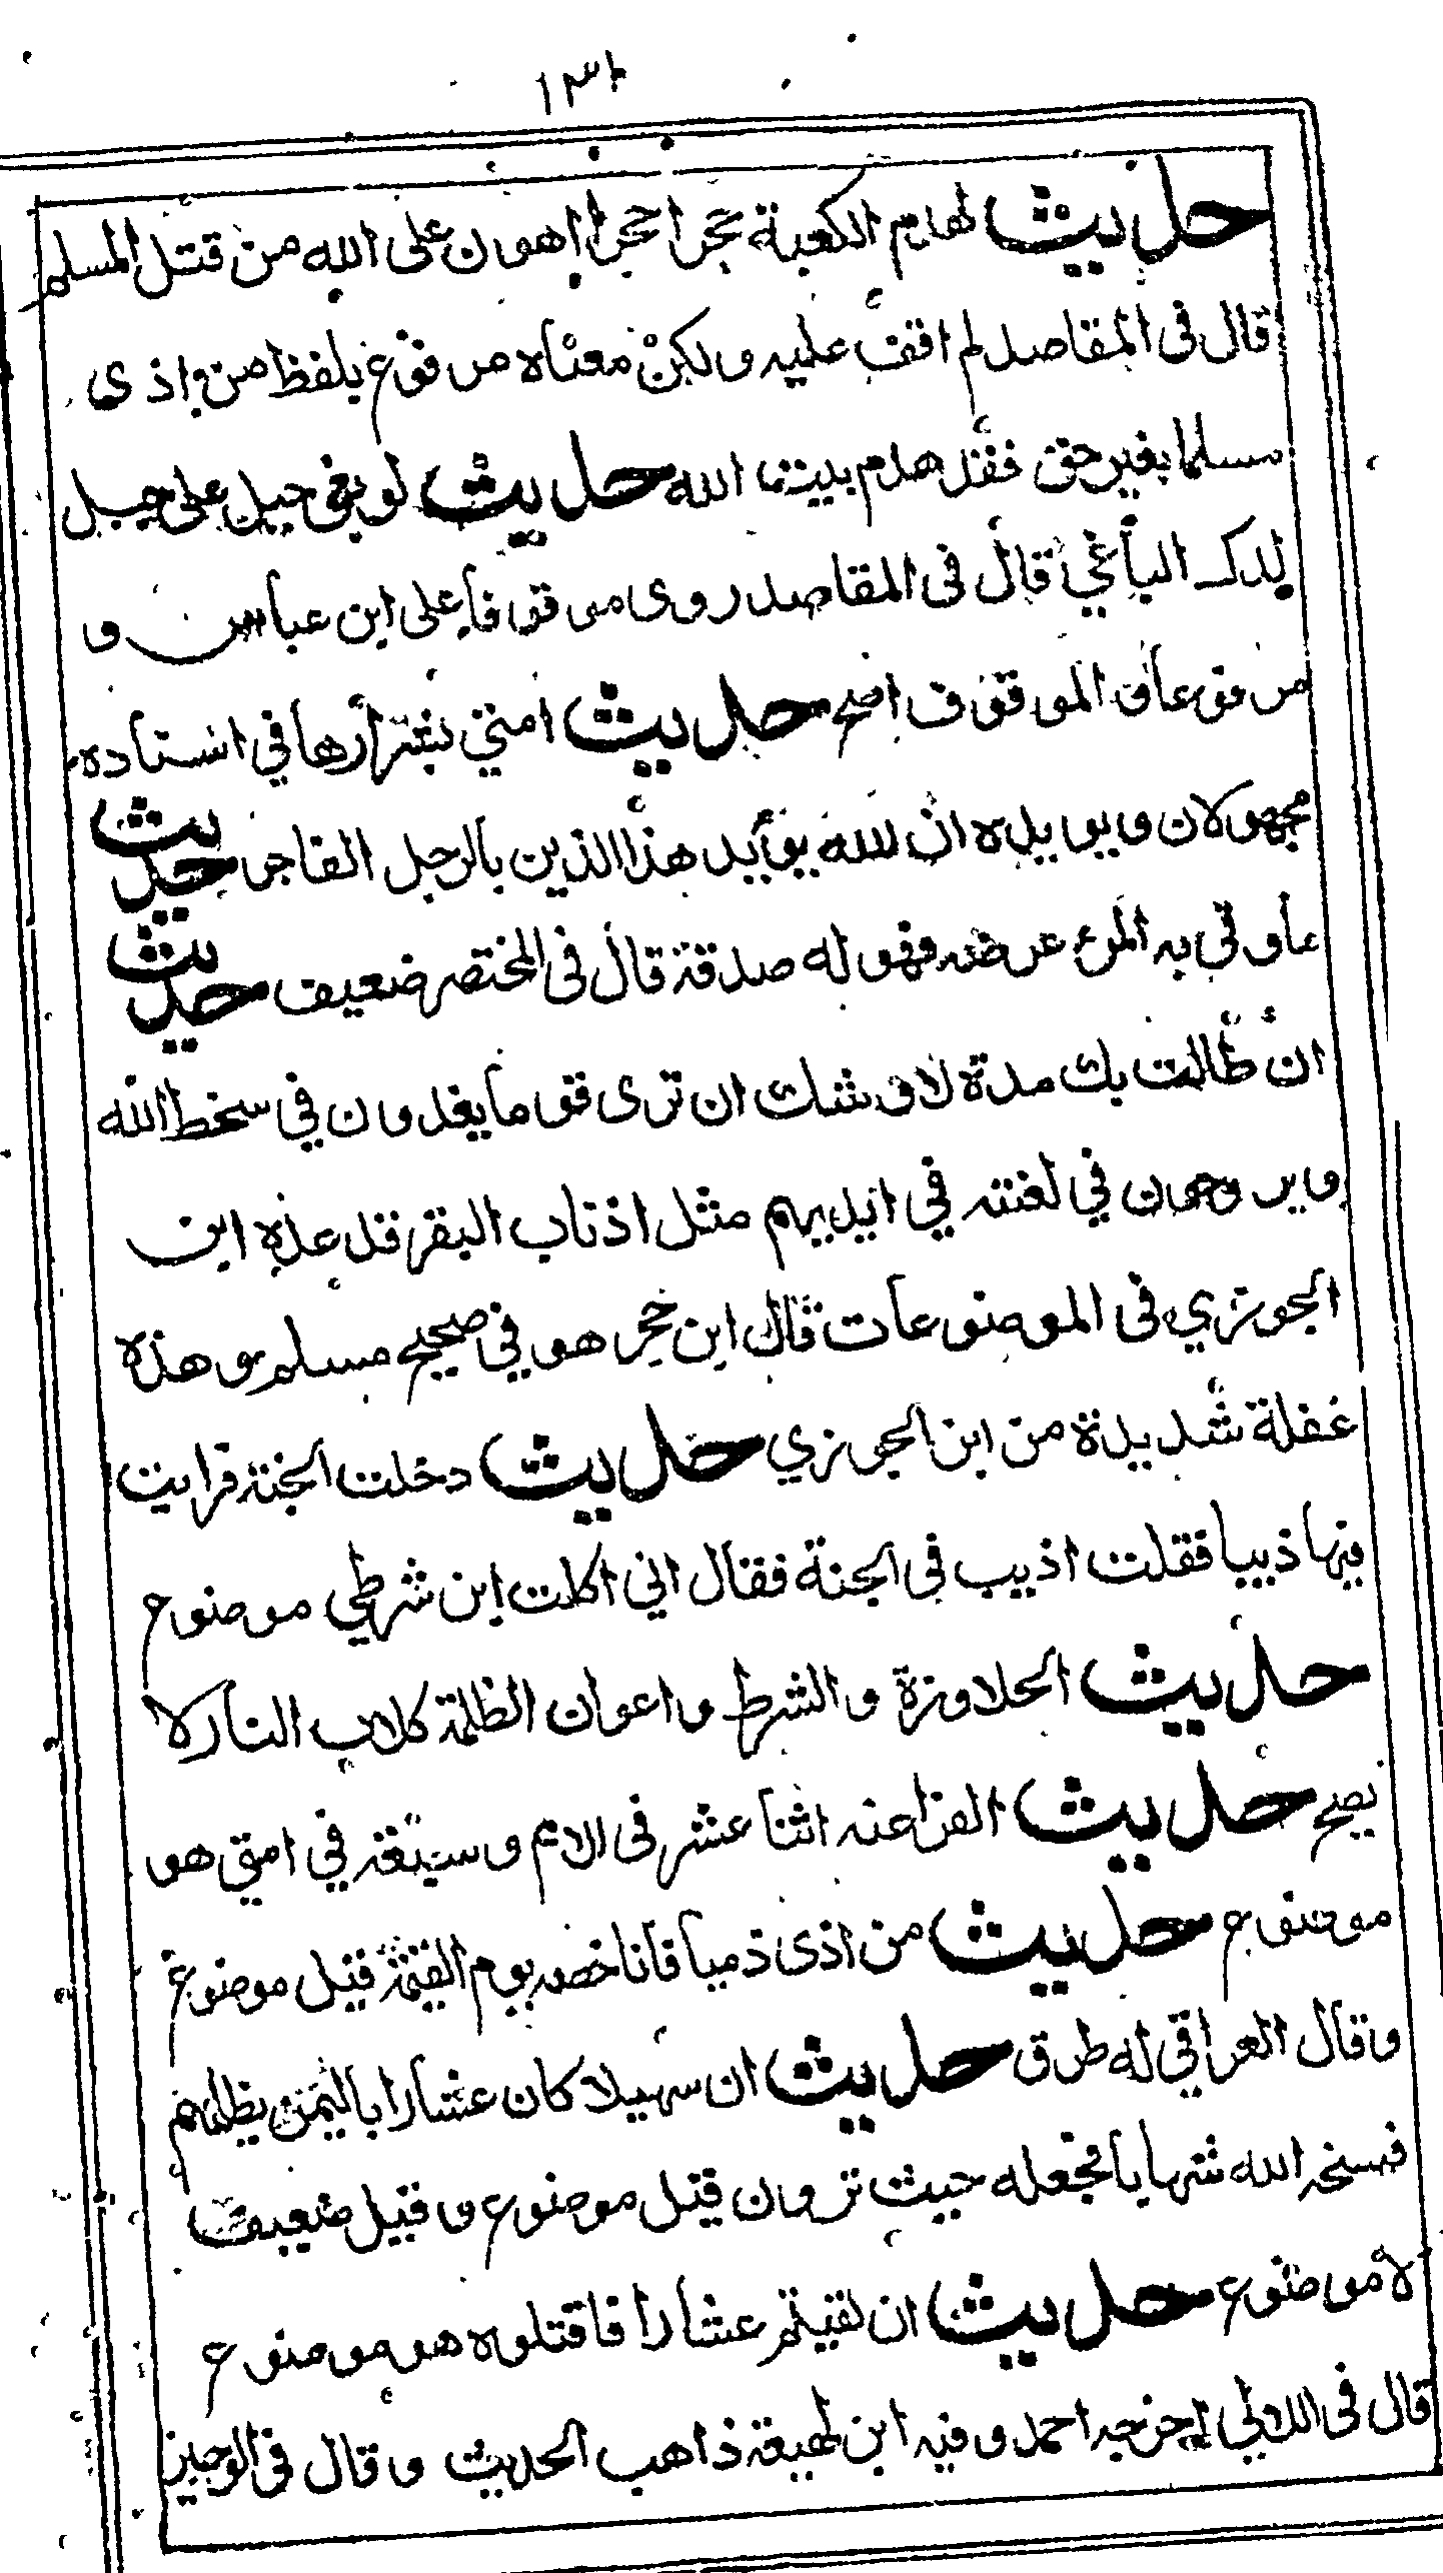 ١٣٢
حديث لهدم الكعبة حجرا حجرا اهون على الله من قتل المسلم
قال فى المقاصد لم اقف عليه ولكن معناه مرفوع بلفظ من اذى
مسلما بغير حق فقد هدم بيت الله حديث لو بغى جبل على جبل
لدك الباغي قال فى المقاصد روى موقوفا على ابن عباس و
مرفوعا والموقوف اصح حديث امتي فى اسناده
مجهولان ويويده ان الله يؤيد هذا الدين بالرجل الفاجر حديث
ماوقي به المرء عرضه فهو له صدقة قال فى المختصر ضعيف حديث
ان طالت بك مدة لاوشك ان ترى قوما يغدون في سخط الله
ويروحون في لعنته في ايديهم مثل اذناب البقر قد عده ابن
الجوزي فى الموضوعات قال ابن حجر هو في صحيح مسلم وهذه
غفلة شديدة من ابن الجوزي حديث دخلت الجنة فرايت
فيها ذيبا فقلت اذيب فى الجنة فقال اني اكلت ابن شرطي موضوع
حديث الجلاوزة والشرط واعوان الظلمة كلاب النار لا
يصح حديث الفراعنه اثنا عشر فى الامم وسبعة في امتي هو
موضوع حديث من اذى ذميا فانا خصمه يوم القيمة قيل موضوع
وقال العراقي له طرق حديث ان سهيلا كان عشارا باليمن يظلمهم
فمسخه الله شهابا فجعله حيث ترون قيل موضوع وقيل ضعيف
لا موضوع حديث ان لقيتم عشارا فاقتلوه هو موضوع
قال فى اللالي اخرجه احمد وفيه ابن لهيعة ذاهب الحديث وقال فى الوجيز